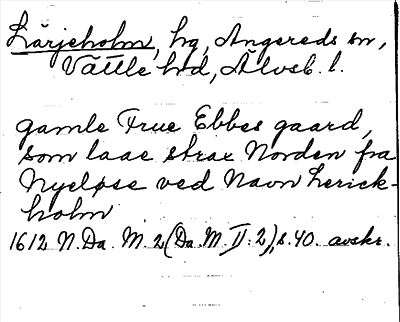 Lärjeholm, hg, Angereds sn,
Vättle hd, Älvsb. l.
gamle Frue Ebbes gaard,
som laae strax Norden fra
Nyeløse ved Navn Lerick-
holm
1612 N. Da. M. 2 (Da. M. II: 2), s. 40. avskr.